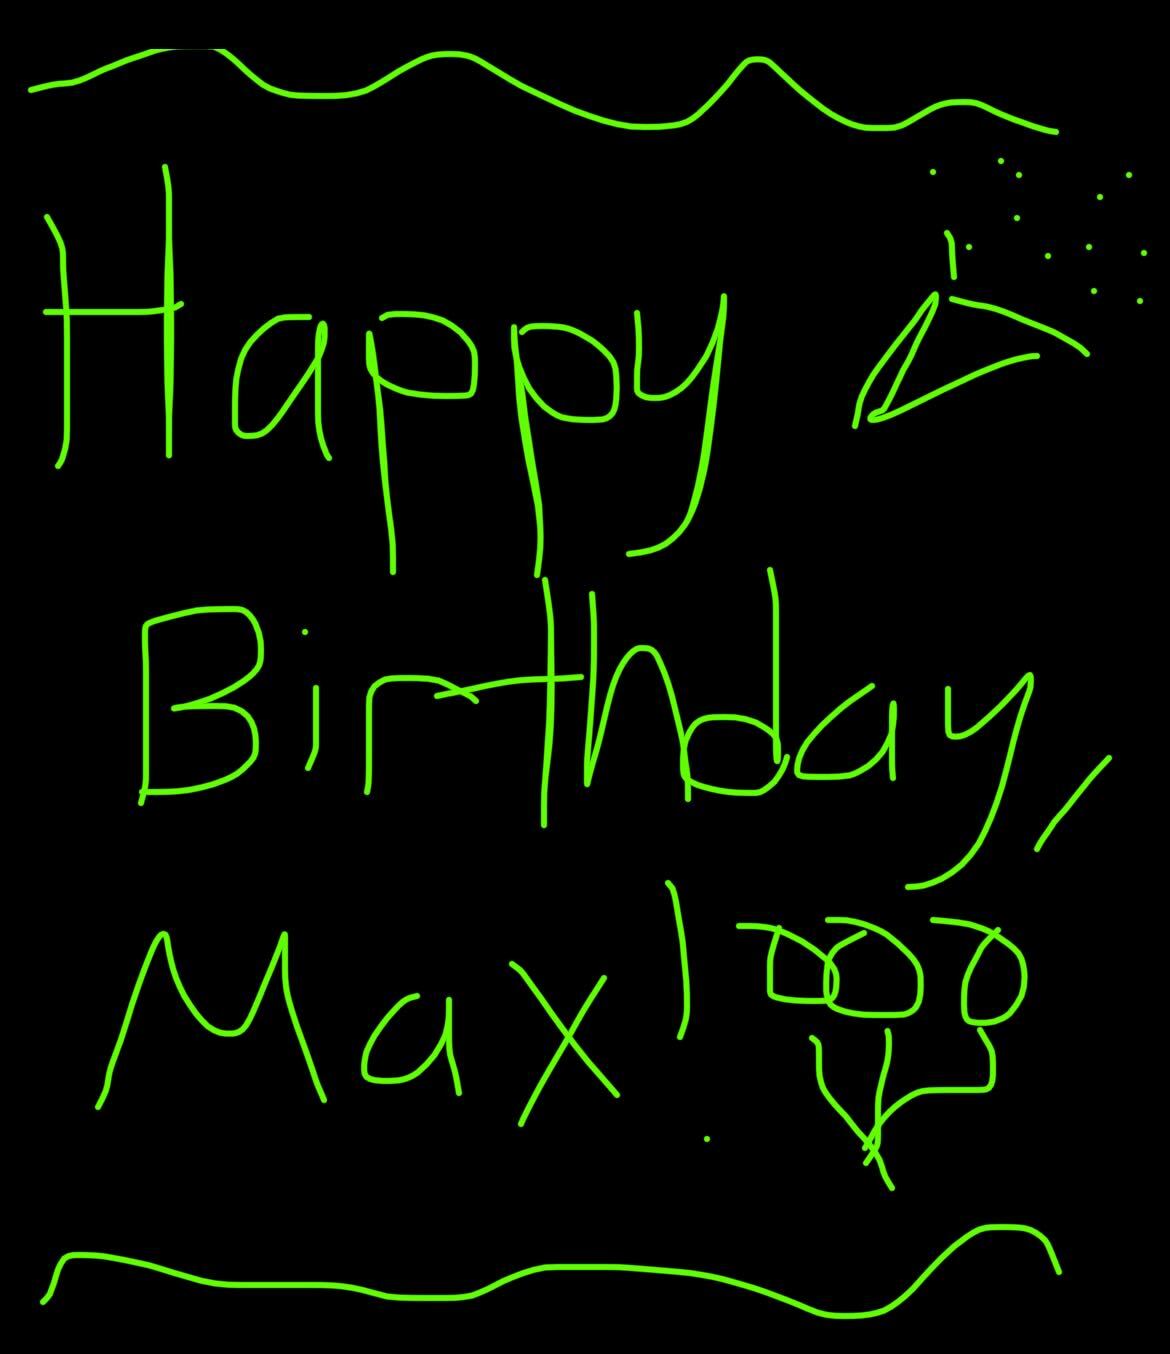 Happy
Birthday,
Max!